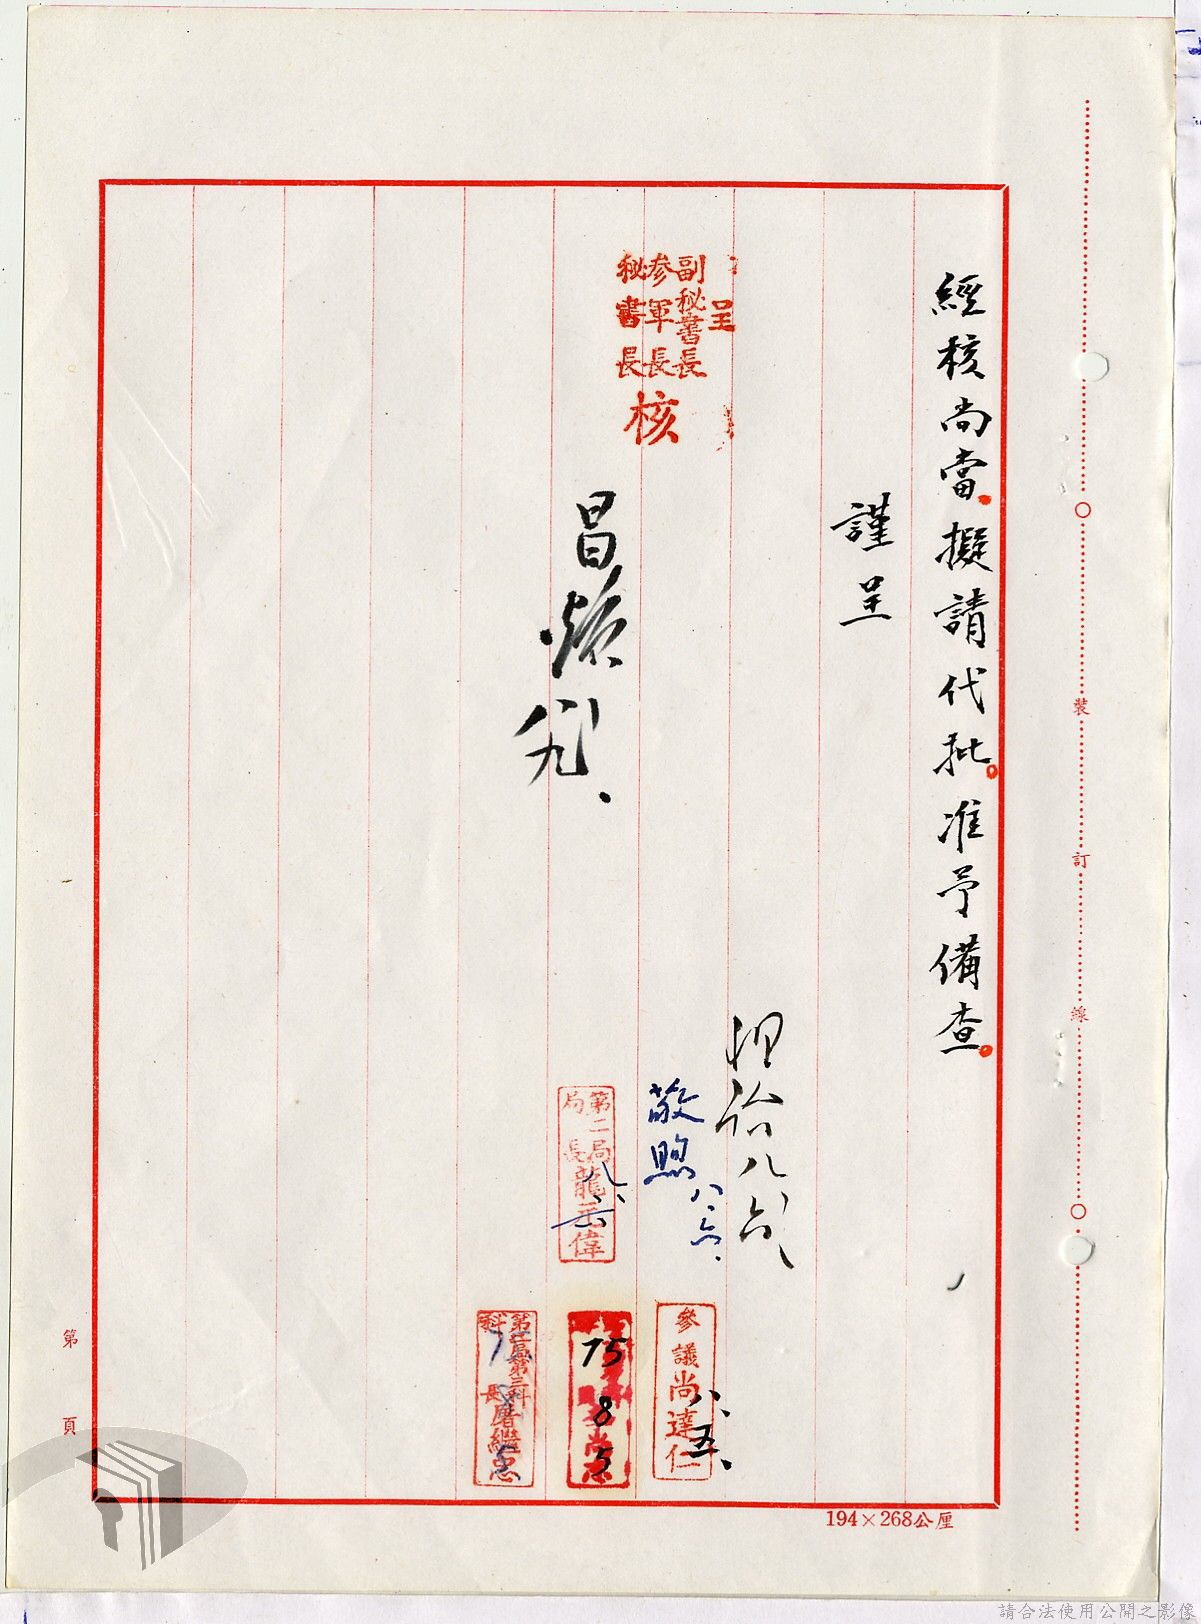 經核尚當。擬請代批。准予備查。
謹呈
呈
副秘書長
參軍長
秘書長
核
昌煥 八.
敬煦 八.六.
第二局局長龍
偉
參議尚達仁
八.五.
75
8
5
第三科科長
繼忠
裝
訂
線
第
頁
194×268公厘
請合法使用公開之影像